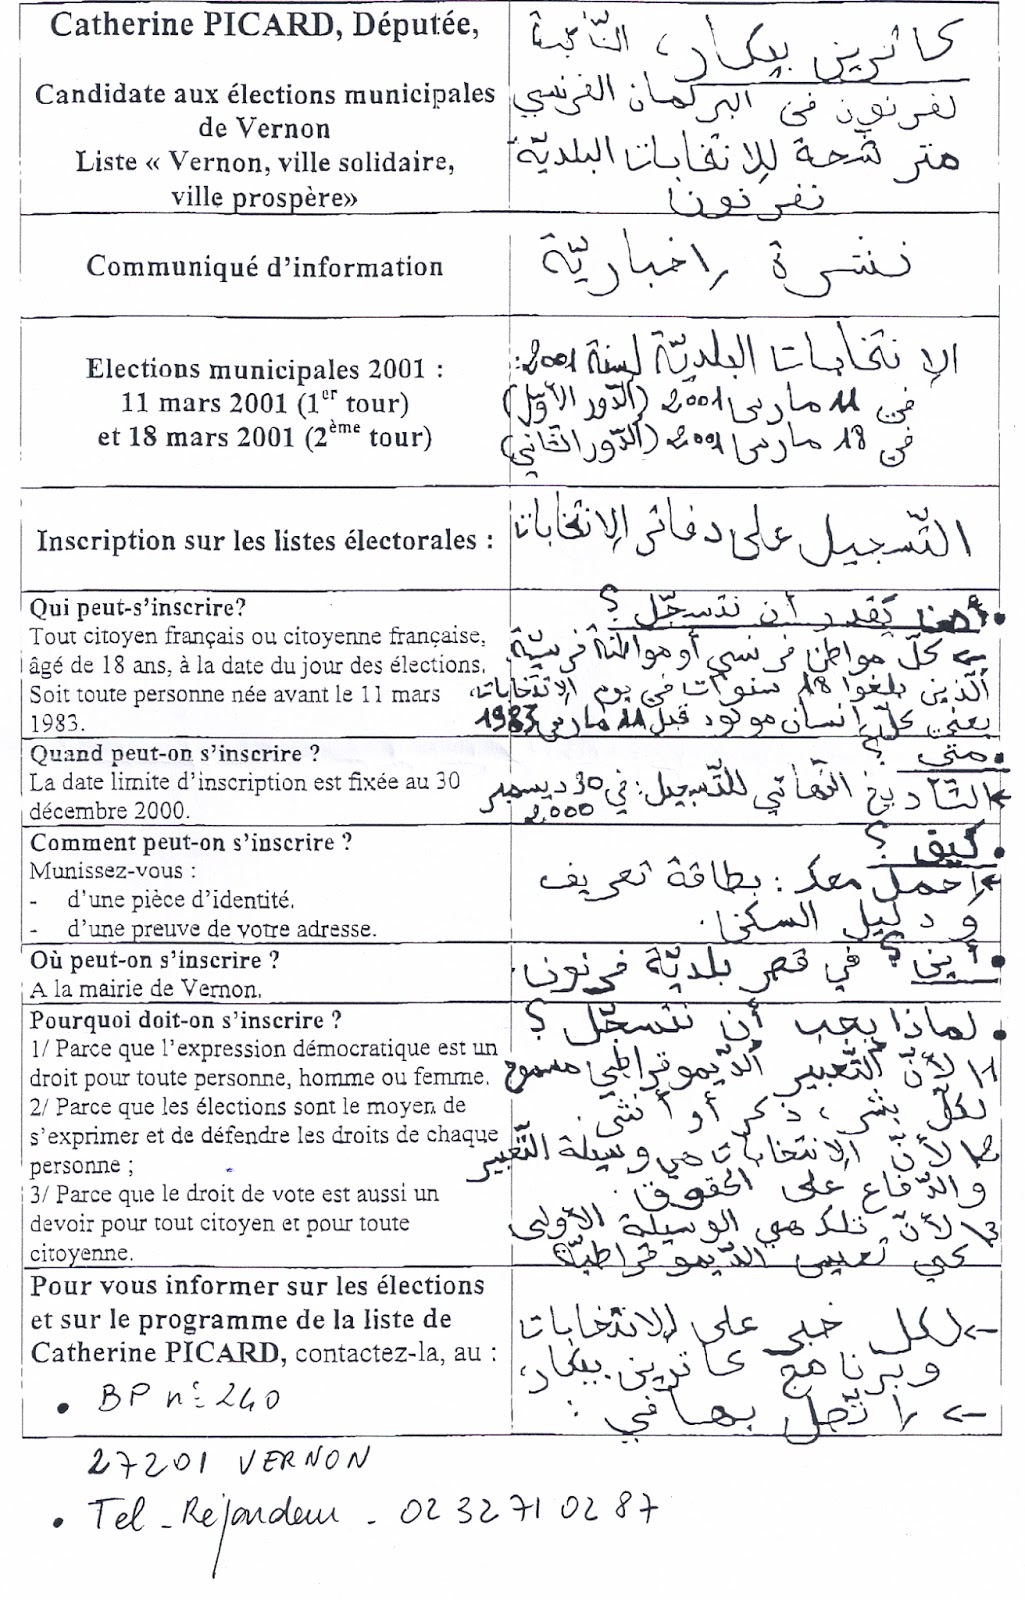 Catherine PICARD, Députée,
Candidate aux élections municipales
de Vernon
Liste « Vernon, ville solidaire,
ville prospère»
كاترين بيكار، النّائبة
لفرنون في البرلمان الفرنسي
مترشّحة للإنتخابات البلديّة
نفرنون
Communiqué d'information
نشرة إخباريّة
Elections municipales 2001 :
11 mars 2001 (1er tour)
et 18 mars 2001 (2ème tour)
الإنتخابات البلديّة لسنة 2001:
في 11 مارس 2001 (الدّور الأوّل)
في 18 مارس 2001 (الدّور الثّاني)
Inscription sur les listes électorales :
التّسجيل على دفاتر الإنتخابات
Qui peut-s'inscrire?
Tout citoyen français ou citoyenne française,
âgé de 18 ans, à la date du jour des élections.
Soit toute personne née avant le 11 mars
1983.
يقدر أن نتسجّل؟
كلّ مواطن فرنسي أو مواطنة فرنسيّة
الّذين بلغوا 18 سنوات في يوم الإنتخابات،
يعني كلّ إنسان مولود قبل 11 مارس 1983
Quand peut-on s'inscrire ?
La date limite d'inscription est fixée au 30
décembre 2000.
• متى؟
← التّأريخ النّهائي للتّسجيل: في 30 ديسمبر
2000
Comment peut-on s'inscrire ?
Munissez-vous :
- d'une pièce d'identité.
- d'une preuve de votre adresse.
• كيف؟
← إحمل معك: بطاقة تعريف
و دليل السكنى.
Où peut-on s'inscrire ?
A la mairie de Vernon.
• أين؟ في قصر بلديّة فرنون.
Pourquoi doit-on s'inscrire ?
1/ Parce que l'expression démocratique est un
droit pour toute personne, homme ou femme.
2/ Parce que les élections sont le moyen de
s'exprimer et de défendre les droits de chaque
personne ;
3/ Parce que le droit de vote est aussi un
devoir pour tout citoyen et pour toute
citoyenne.
• لماذا يجب أن نتسجّل؟
1/ لأنّ التّعبير الدّيموقراطي مسموح
لكلّ بشر، ذكر أو أنثى.
2/ لأنّ الإنتخابات هي وسيلة التّعبير
والدّفاع على الحقوق.
3/ لأنّ تلك هي الوسيلة الأولى
كي تعيش الدّيموقراطيّة
Pour vous informer sur les élections
et sur le programme de la liste de
Catherine PICARD, contactez-la, au :
• BP n° 240
27201 VERNON
• Tel - Répondeur - 02 32 71 02 87
← لكل خبر على الإنتخابات
وبرنامج كاترين بيكار،
← إتّصل بها في: